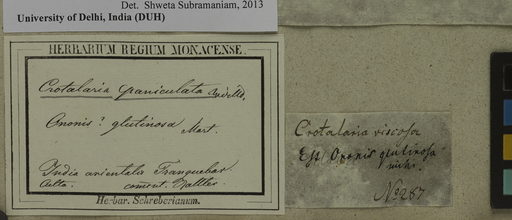 Det. Shweta Subramaniam, 2013
University of Delhi, India (DUH)
HERBARIUM REGIUM MONACENSE.
Crotalaria paniculata
Ononis? glutinosa
India orientalis Tranquebar
Herbar. Schreberianum.
Crotalaria viscosa
Est Ononis glutinosa
mihi.
No 287